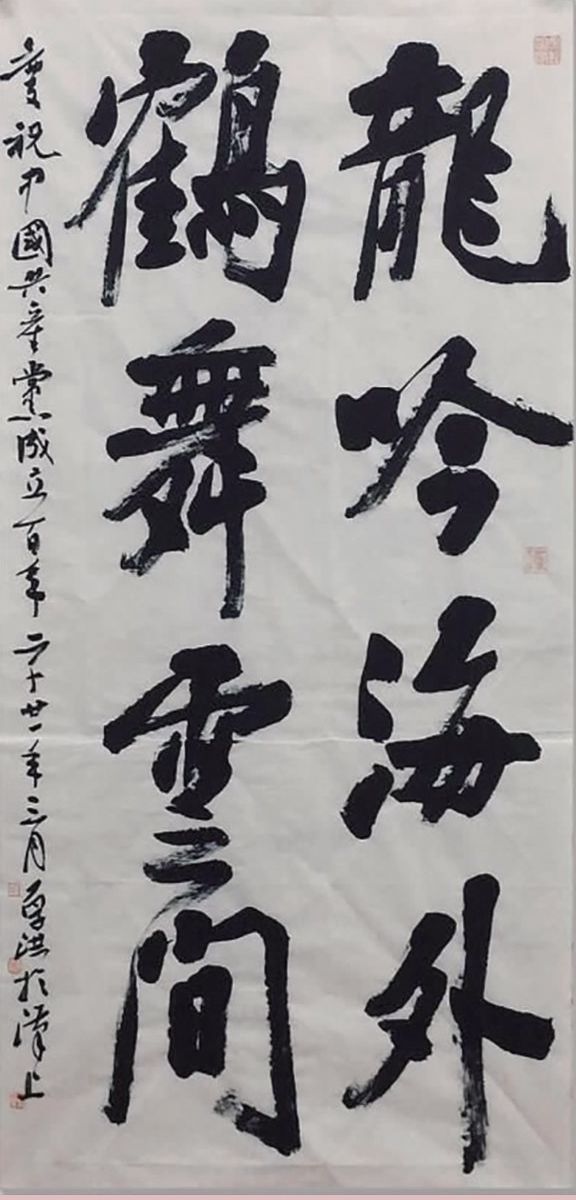 龍吟海外
鶴舞雲間
慶祝中國共產黨成立百年二十廿一年三月洪於漢上